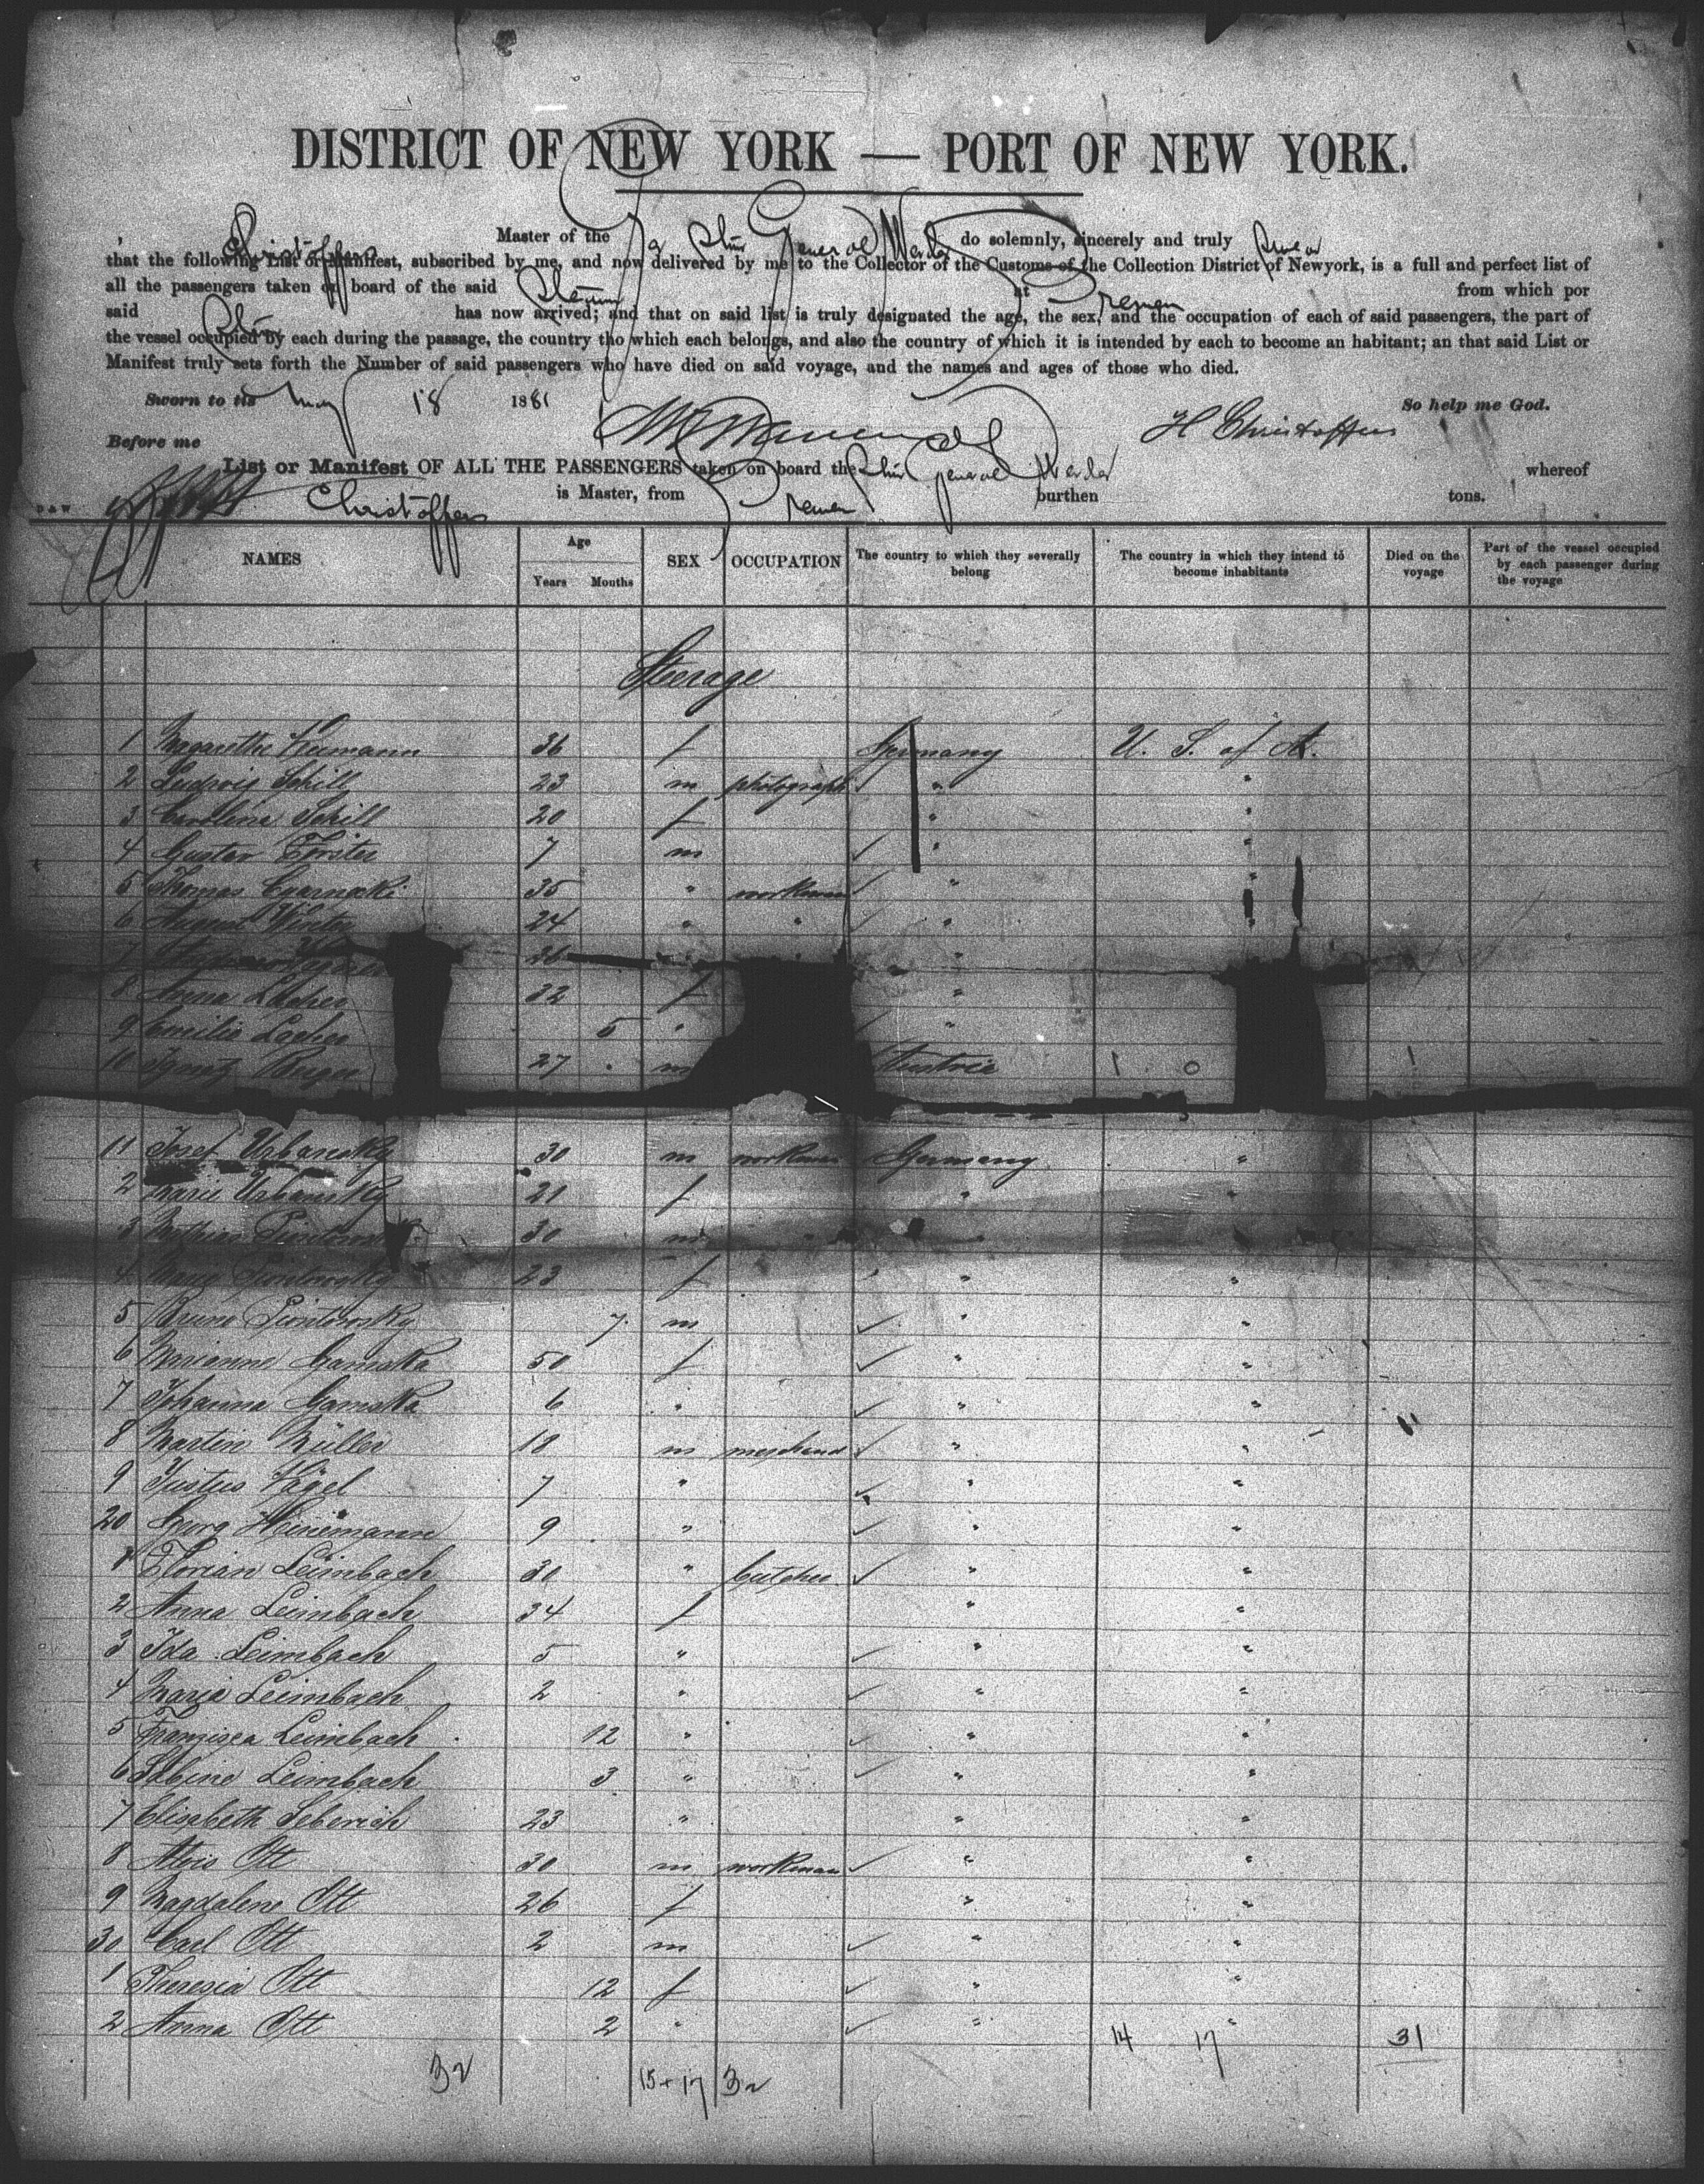 DISTRICT OF NEW YORK — PORT OF NEW YORK.
Christoffers Master of the Str General Werder do solemnly, sincerely and truly swear
that the following List or Manifest, subscribed by me, and now delivered by me to the Collector of the Customs of the Collection District of Newyork, is a full and perfect list of
all the passengers taken on board of the said Steamer at Bremen from which por
said Str has now arrived; and that on said list is truly designated the age, the sex, and the occupation of each of said passengers, the part of
the vessel occupied by each during the passage, the country tho which each belongs, and also the country of which it is intended by each to become an habitant; an that said List or
Manifest truly sets forth the Number of said passengers who have died on said voyage, and the names and ages of those who died.
Sworn to tis May 18 1881 So help me God.
Before me H Christoffers
List or Manifest OF ALL THE PASSENGERS taken on board the Str General Werder whereof
Christoffers is Master, from Bremen burthen tons.
NAMES Age Years Months SEX OCCUPATION The country to which they severally belong The country in which they intend to become inhabitants Died on the voyage Part of the vessel occupied by each passenger during the voyage
Steerage
1 Magarethe 36 f Germany U. S. of A.
2 Ludwig Schill 23 m photograph " "
3 Carolina Schill 20 f " "
4 Gustav Förster 7 m " "
5 Thomas Czarnecki 35 " workman " "
6 August 24 " " " "
7 26 " "
8 Anna Lacher 32 f "
9 Emilie Lacher 5 " "
10 Ignatz 27 m Austria 1 0 1
11 Josef Urbansky 30 m workman Germany "
2 Marie Urbansky 21 f " "
3 Piontowsky 30 m "
4 Marie Piontowsky 23 f " "
5 Bruno Piontowsky 7 m " "
6 Marianne Gamska 50 f " "
7 Johanna Gamska 6 " " "
8 Martin Müller 18 m merchand " "
9 Justus Vögel 7 " " "
20 Georg Heinemann 9 " " "
1 Florian Leimbach 30 " butcher " "
2 Anna Leimbach 34 f " "
3 Ida Leimbach 5 " " "
4 Maria Leimbach 2 " " "
5 Franzisca Leimbach 12 " " "
6 Sabine Leimbach 3 " " "
7 Elisabeth Seberich 23 " " "
8 Alois Ott 30 m workman " "
9 Magdalene Ott 26 f " "
30 Carl Ott 2 m " "
1 Theresia Ott 12 f " "
2 Anna Ott 2 " " "
14 17 31
32 15 + 17 32